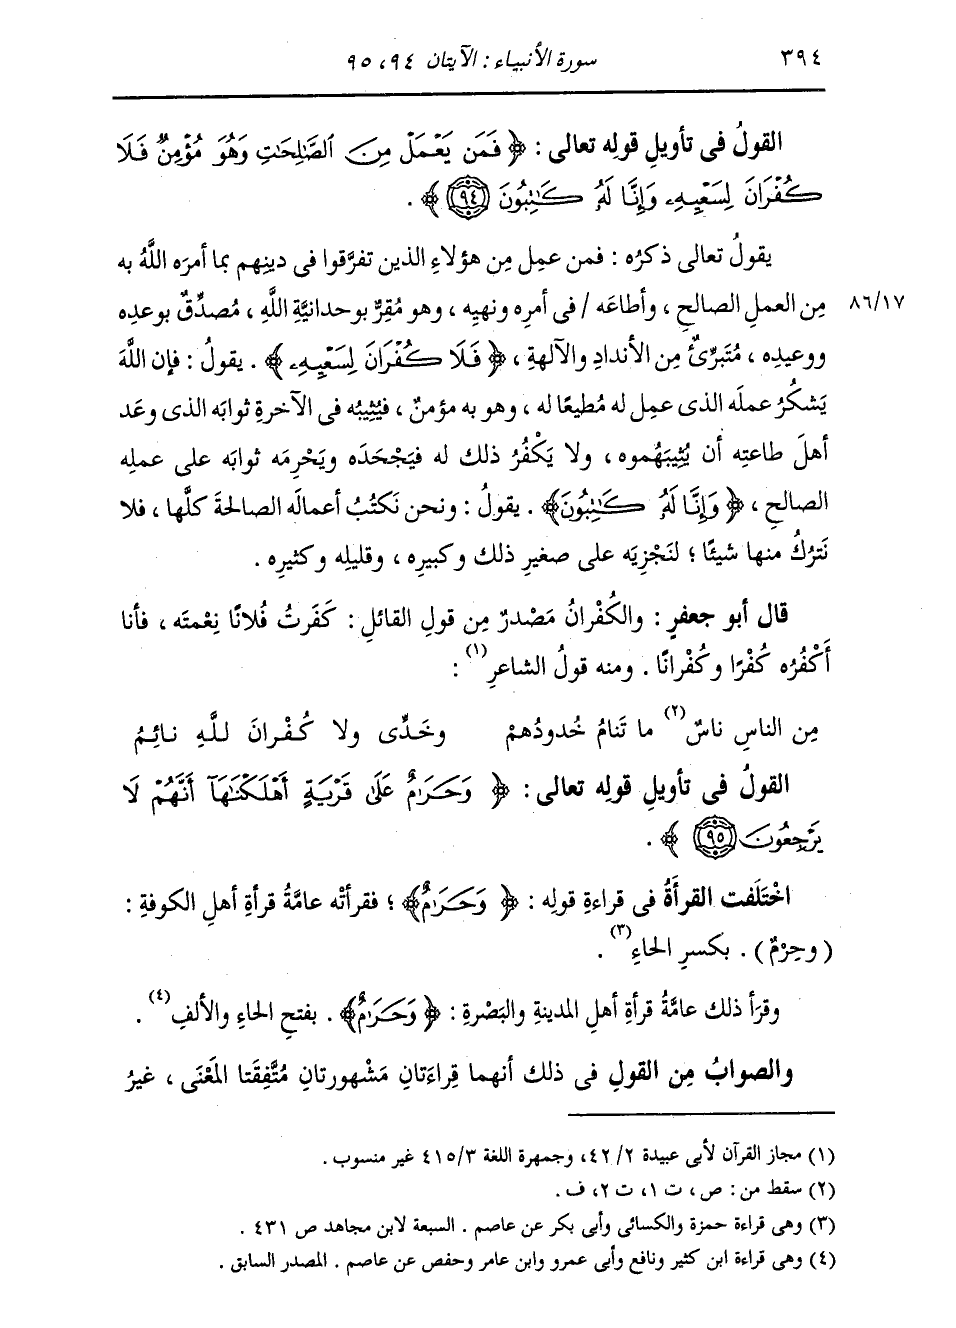 ٣٩٤ سورة الأنبياء : الآيتان ٩٤ ، ٩٥
القولُ فى تأويلِ قولِه تعالى : ﴿ فَمَن يَعْمَلْ مِنَ ٱلصَّٰلِحَٰتِ وَهُوَ مُؤْمِنٌ فَلَا
كُفْرَانَ لِسَعْيِهِۦ وَإِنَّا لَهُۥ كَٰتِبُونَ ٩٤ ﴾ .
يقولُ تعالى ذكرُه : فمن عمِل مِن هؤلاءِ الذين تفرَّقوا فى دينِهم بما أمرَه اللَّهُ به
٨٦/١٧ مِن العملِ الصالحِ ، وأطاعَه / فى أمرِه ونهيِه ، وهو مُقِرٌّ بوحدانيَّةِ اللَّهِ ، مُصدِّقٌ بوعدِه
ووعيدِه ، مُتَبرِّئٌ مِن الأندادِ والآلهةِ ، ﴿ فَلَا كُفْرَانَ لِسَعْيِهِۦ ﴾ . يقولُ : فإن اللَّهَ
يَشكُرُ عملَه الذى عمِل له مُطيعًا له ، وهو به مؤمنٌ ، فيُثِيبُه فى الآخرةِ ثوابَه الذى وعَد
أهلَ طاعتِه أن يُثِيبَهُموه ، ولا يَكْفُرُ ذلك له فيَجْحَدَه ويَحْرِمَه ثوابَه على عملِه
الصالحِ ، ﴿ وَإِنَّا لَهُۥ كَٰتِبُونَ﴾ . يقولُ : ونحن نَكتُبُ أعمالَه الصالحةَ كلَّها ، فلا
نَترُكُ منها شيئًا ؛ لنَجْزِيَه على صغيرِ ذلك وكبيرِه ، وقليلِه وكثيرِه .
قال أبو جعفرٍ : والكُفْرانُ مَصْدرٌ مِن قولِ القائلِ : كَفَرتُ فُلانًا نِعْمتَه ، فأنا
أَكْفُرُه كُفْرًا وكُفْرانًا . ومنه قولُ الشاعرِ(١) :
مِن الناسِ ناسٌ(٢) ما تَنامُ خُدودُهمْ وخَدِّى ولا كُفْرانَ للَّهِ نائِمُ
القولُ فى تأويلِ قولِه تعالى : ﴿ وَحَرَٰمٌ عَلَىٰ قَرْيَةٍ أَهْلَكْنَٰهَآ أَنَّهُمْ لَا
يَرْجِعُونَ ٩٥ ﴾ .
اخْتَلَفت القرأَةُ فى قراءةِ قولِه : ﴿ وَحَرَٰمٌ﴾ ؛ فقرأتْه عامَّةُ قرأةِ أهلِ الكوفةِ :
( وحِرْمٌ ) . بكسرِ الحاءِ(٣) .
وقرَأ ذلك عامَّةُ قرأةِ أهلِ المدينةِ والبَصْرةِ : ﴿ وَحَرَٰمٌ﴾ . بفتحِ الحاءِ والألفِ(٤) .
والصوابُ مِن القولِ فى ذلك أنهما قِراءَتانِ مَشْهورتانِ مُتَّفِقَتا المَعْنَى ، غيرُ
(١) مجاز القرآن لأبى عبيدة ٢/ ٤٢، وجمهرة اللغة ٤١٥/٣ غير منسوب .
(٢) سقط من : ص ، ت ١، ت ٢، ف .
(٣) وهى قراءة حمزة والكسائى وأبى بكر عن عاصم . السبعة لابن مجاهد ص ٤٣١ .
(٤) وهى قراءة ابن كثير ونافع وأبى عمرو وابن عامر وحفص عن عاصم . المصدر السابق .